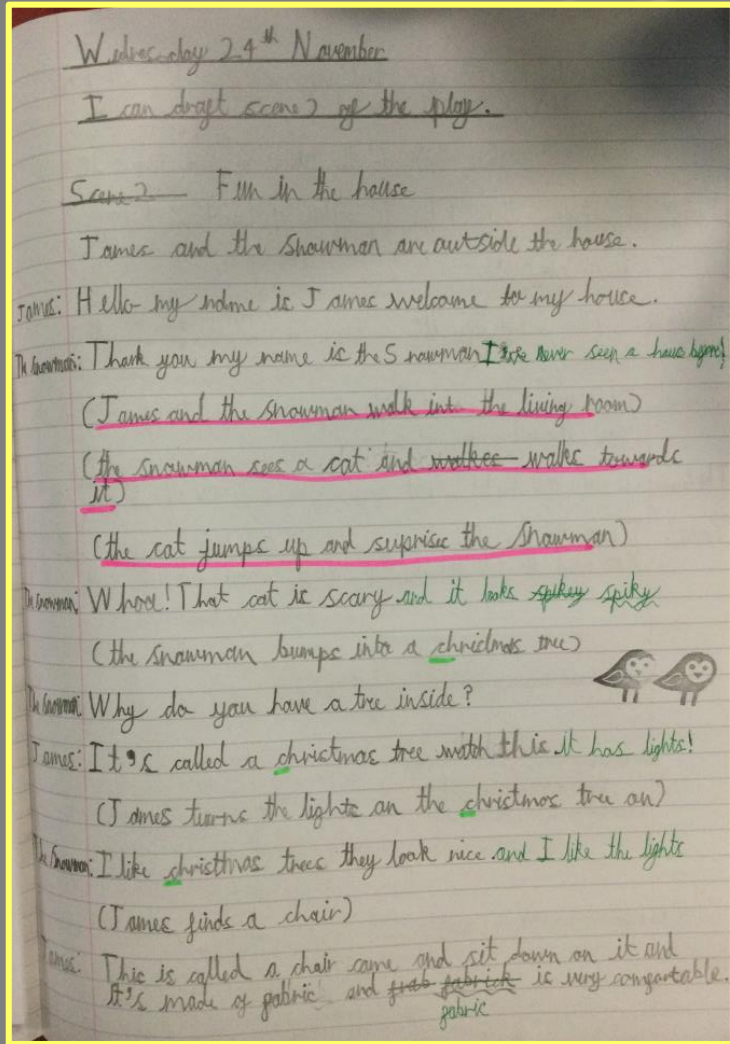 Wednesday 24th November
I can draft scene 2 of the play.
Scene 2 Fun in the house
James and the Snowman are outside the house.
James: Hello my name is James welcome to my house.
The Snowman: Thank you my name is the Snowman I have never seen a house before!
(James and the snowman walk into the living room)
(the snowman sees a cat and walkes walks towards
it)
(the cat jumps up and suprise the Snowman)
The Snowman: Whoa! That cat is scary and it looks spikey spiky
(the snowman bumps into a christmas tree)
The Snowman: Why do you have a tree inside?
James: It's called a christmas tree watch this it has lights!
(James turns the lights on the christmas tree on)
The Snowman: I like christmas trees they look nice and I like the lights
(James finds a chair)
James: This is called a chair come and sit down on it and
It's made of fabric and frab fabrick is very comfortable.
fabric